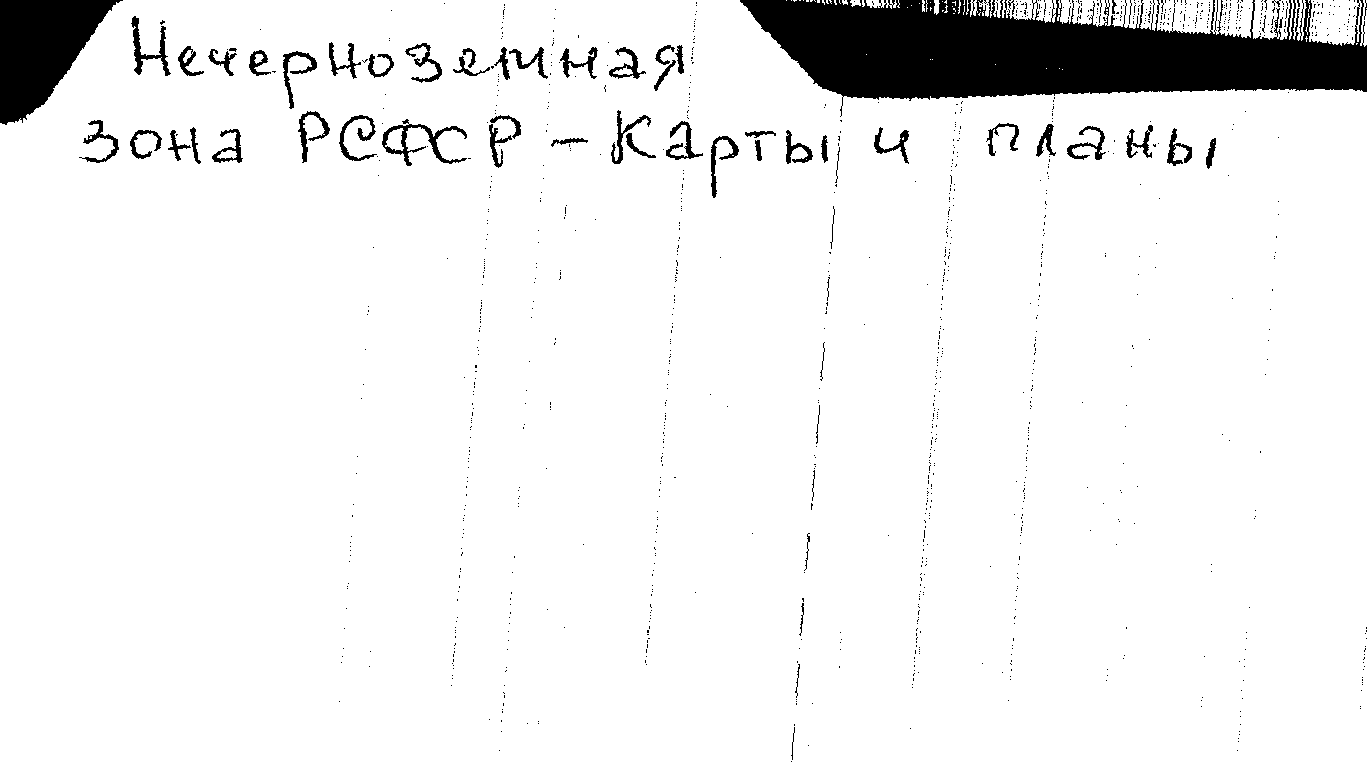 Нечерноземная
зона РСФСР - Карты и планы